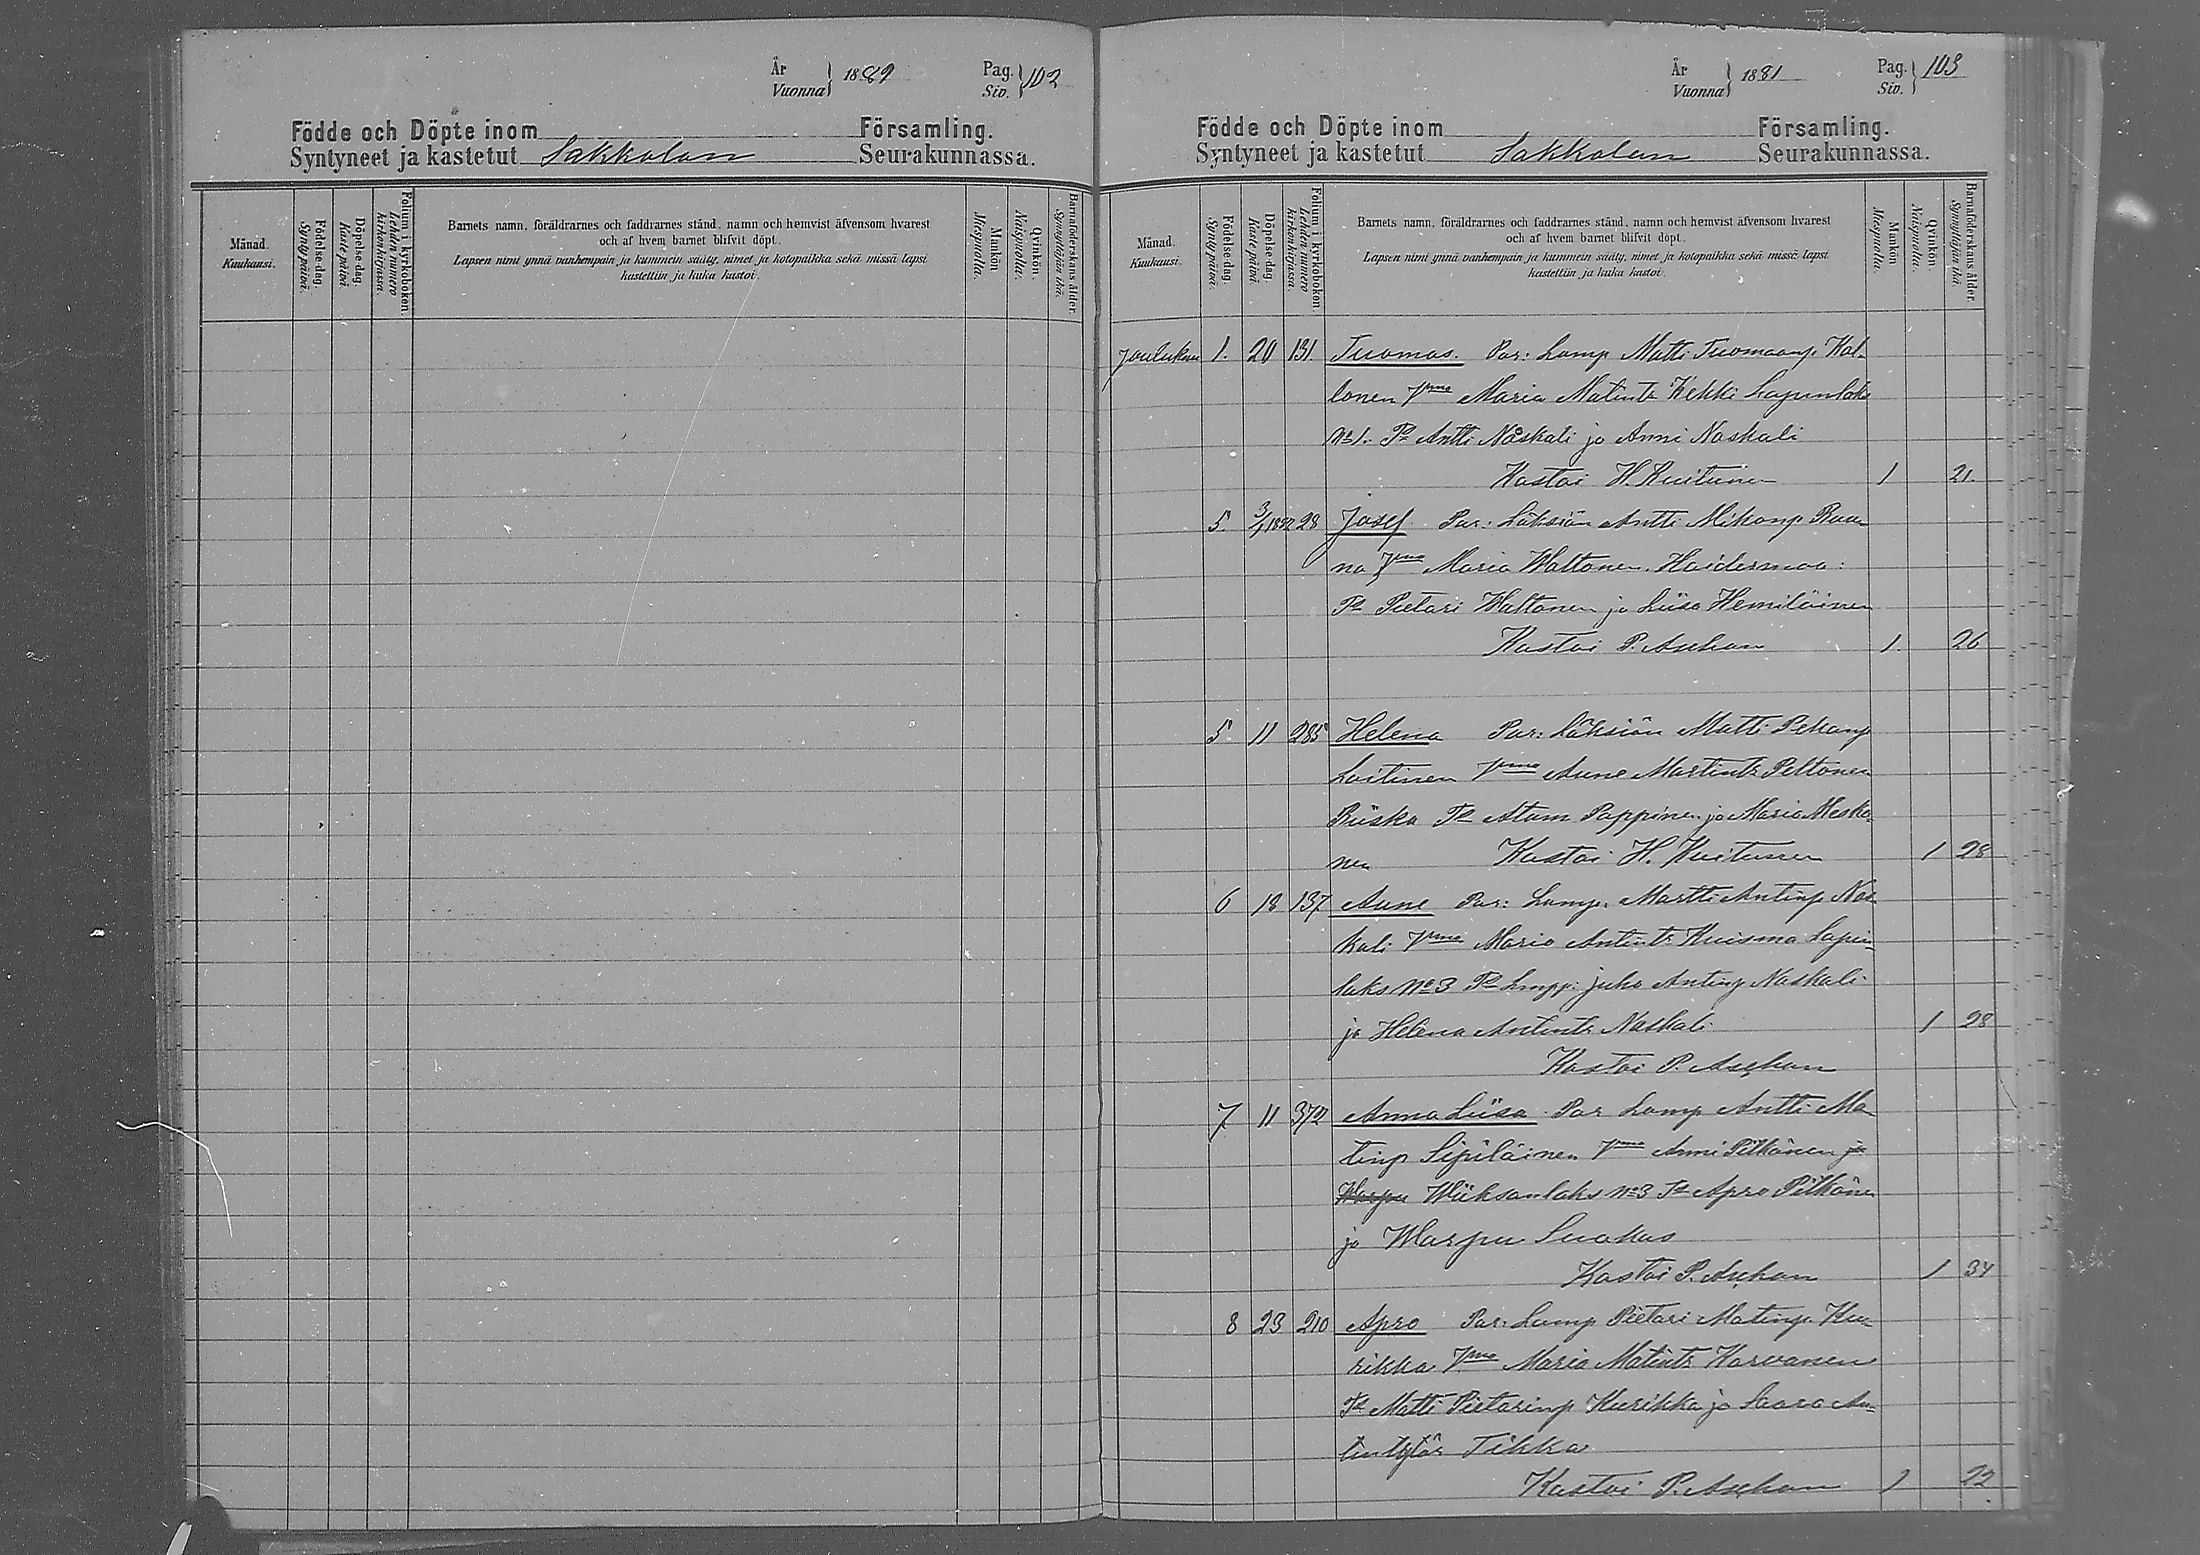 År
Vuonna } 1882 Pag.
Siv. } 102
Födde och Döpte inom Församling.
Syntyneet ja kastetut Sakkolan Seurakunnassa.
Månad.
Kuukausi.
Födelse-dag.
Syntypäivä.
Döpelse-dag.
Kaste päivä.
Folium i kyrkoboken.
Lehden numero kirkonkirjassa.
Barnets namn, föräldrarnes och faddrarnes stånd, namn och hemvist äfvensom hvarest
och af hvem barnet blifvit döpt.
Lapsen nimi ynnä vanhempain ja kummein sääty, nimet ja kotopaikka sekä missä lapsi
kastettiin ja kuka kastoi.
Mankön.
Miespuolia.
Qvinkön.
Naispuolia.
Barnaföderskans ålder.
Synnyttäjän ikä.
År
Vuonna } 1881 Pag.
Siv. } 103
Födde och Döpte inom Församling.
Syntyneet ja kastetut Sakkolan Seurakunnassa.
Månad.
Kuukausi.
Födelse-dag.
Syntypäivä.
Döpelse-dag.
Kaste päivä.
Folium i kyrkoboken.
Lehden numero kirkonkirjassa.
Barnets namn, föräldrarnes och faddrarnes stånd, namn och hemvist äfvensom hvarest
och af hvem barnet blifvit döpt.
Lapsen nimi ynnä vanhempain ja kummein sääty, nimet ja kotopaikka sekä missä lapsi
kastettiin ja kuka kastoi.
Mankön.
Miespuolia.
Qvinkön.
Naispuolia.
Barnaföderskans ålder.
Synnyttäjän ikä.
Joulukuu 1. 20 131 Tuomas. Par: Lamp Matti Tuomaanp. Kal-
lonen Vmo Maria Matintr Kekki Lapinlaks
No 1. Td Antti Naskali ja Anni Naskali
Kastoi H. Kuitunen 1 21.
5. 3/1 1882 28 Josef. Par: Läksiän Antti Mikonp Rau-
na Vmo Maria Waltonen. Haidermaa:
Td Pietari Waltonen ja Liisa Hemiläinen
Kastoi P. Aschan 1. 26
5 11 285 Helena Par: Läksiän Matti Pekanp
Loitinen Vmo Aune Martintr Peltonen
Riiska Td Atam Pappinen ja Maria Meska-
nen Kastoi H. Kuitunen 1 28
6 18 137 Aune Par: Lamp. Martti Antinp Nas-
kali Vmo Maria Antintr Kuisma Lapin-
laks No 3 Td Lampp: Juho Antinp Naskali
ja Helena Antintr Naskali. 1 28
Kastoi P. Aschan
7. 11 372 Anna Liisa Par Lamp Antti Ma-
tinp Sipiläinen Vmo Anni Pitkänen ja
Warpu Wiiksanlaks No 3 Td Apro Pitkänen
ja Warpu Suokas
Kastoi P. Aschan 1 34
8 23 210 Apro Par: Lamp Pietari Matinp. Ku-
rikka Vmo Maria Matintr Karvanen
Td Matti Pietarinp Kurikka ja Saara An-
tintytär Tikka
Kastoi P. Aschan 1 22